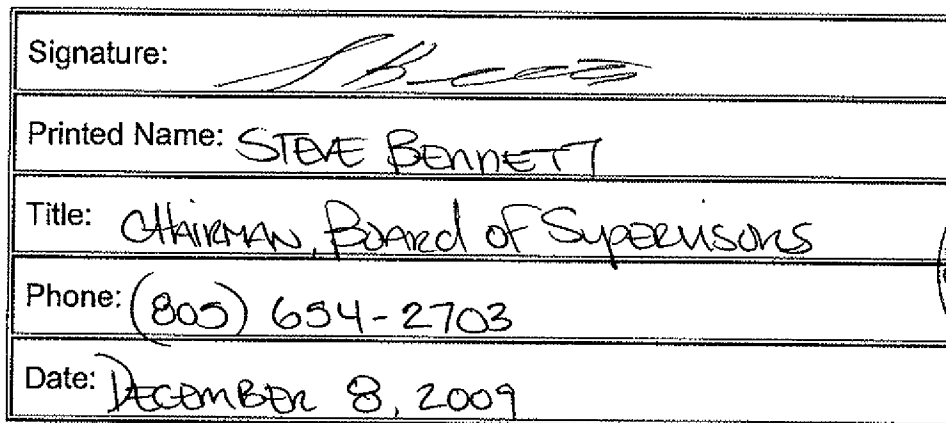 Signature:
Printed Name: STEVE BENNETT
Title: CHAIRMAN, BOARD OF SUPERVISORS
Phone: (805) 654-2703
Date: DECEMBER 8, 2009